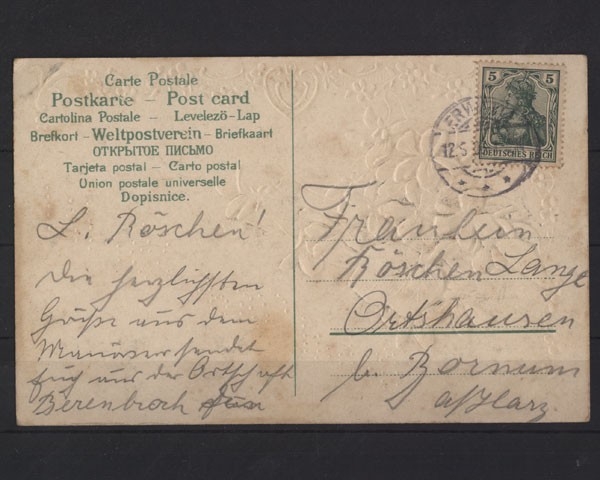 Carte Postale
Postkarte – Post card
Cartolina Postale – Levelezö-Lap
Brefkort – Weltpostverein – Briefkaart
ОТКРЫТОЕ ПИСЬМО
Tarjeta postal – Carto postal
Union postale universelle
Dopisnice.
5 5
DEUTSCHES REICH
12.5
L. Röschen!
Die herzlichsten
Grüße aus dem
Manöver sendet
Euch aus der Ortschaft
Berenbach
Fräulein
Röschen Lange
Ortshausen
b. Bornum
a/Harz.